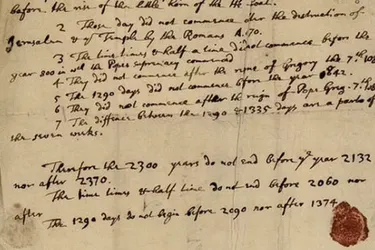 before the rise of the little horn of the He Goat.
2 Those day did not commence after the destruction of
Jerusalem & ye Temple by the Romans A. 70.
3 The time times & half a time did not commence before the
year 800 in wch the Popes supremacy commenced
4 They did not commence after the reigne of Gregory the 7th. 1084
5 The 1290 days did not commence before the year 842.
6 They did not commence after the reign of Pope Greg. 7th. 1084
7 The diffence between the 1290 & 1335 days are a parts of
the seven weeks.
Therefore the 2300 years do not end before ye year 2132
nor after 2370.
The time times & half time do not end before 2060 nor
after
The 1290 days do not begin before 2090 nor after 1374